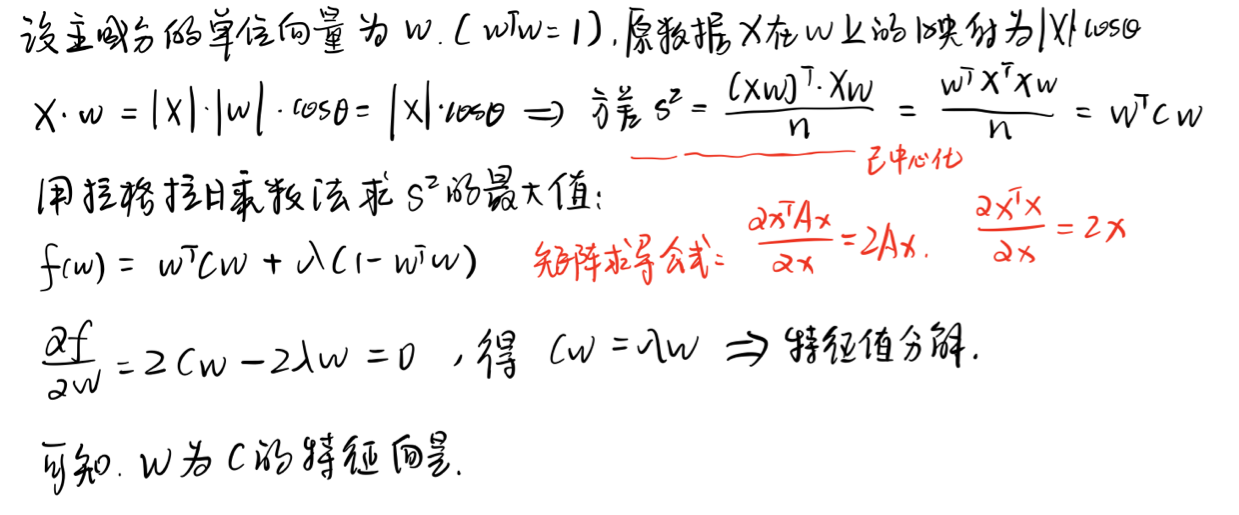 设主成分的单位向量为 w.（wᵀw=1）,原数据 X 在 w 上的映射为|X|cosθ
X·w = |X|·|w|·cosθ = |X|·cosθ ⇒ 方差 s² = (Xw)ᵀ·Xw / n = wᵀXᵀXw / n = wᵀCw
已中心化
用拉格拉日乘数法求 s² 的最大值:
f(w) = wᵀCw + λ(1-wᵀw) 矩阵求导公式: ∂xᵀAx / ∂x = 2Ax. ∂xᵀx / ∂x = 2x
∂f / ∂w = 2Cw - 2λw = 0 ,得 Cw = λw ⇒ 特征值分解.
可知. w 为 C 的特征向量.